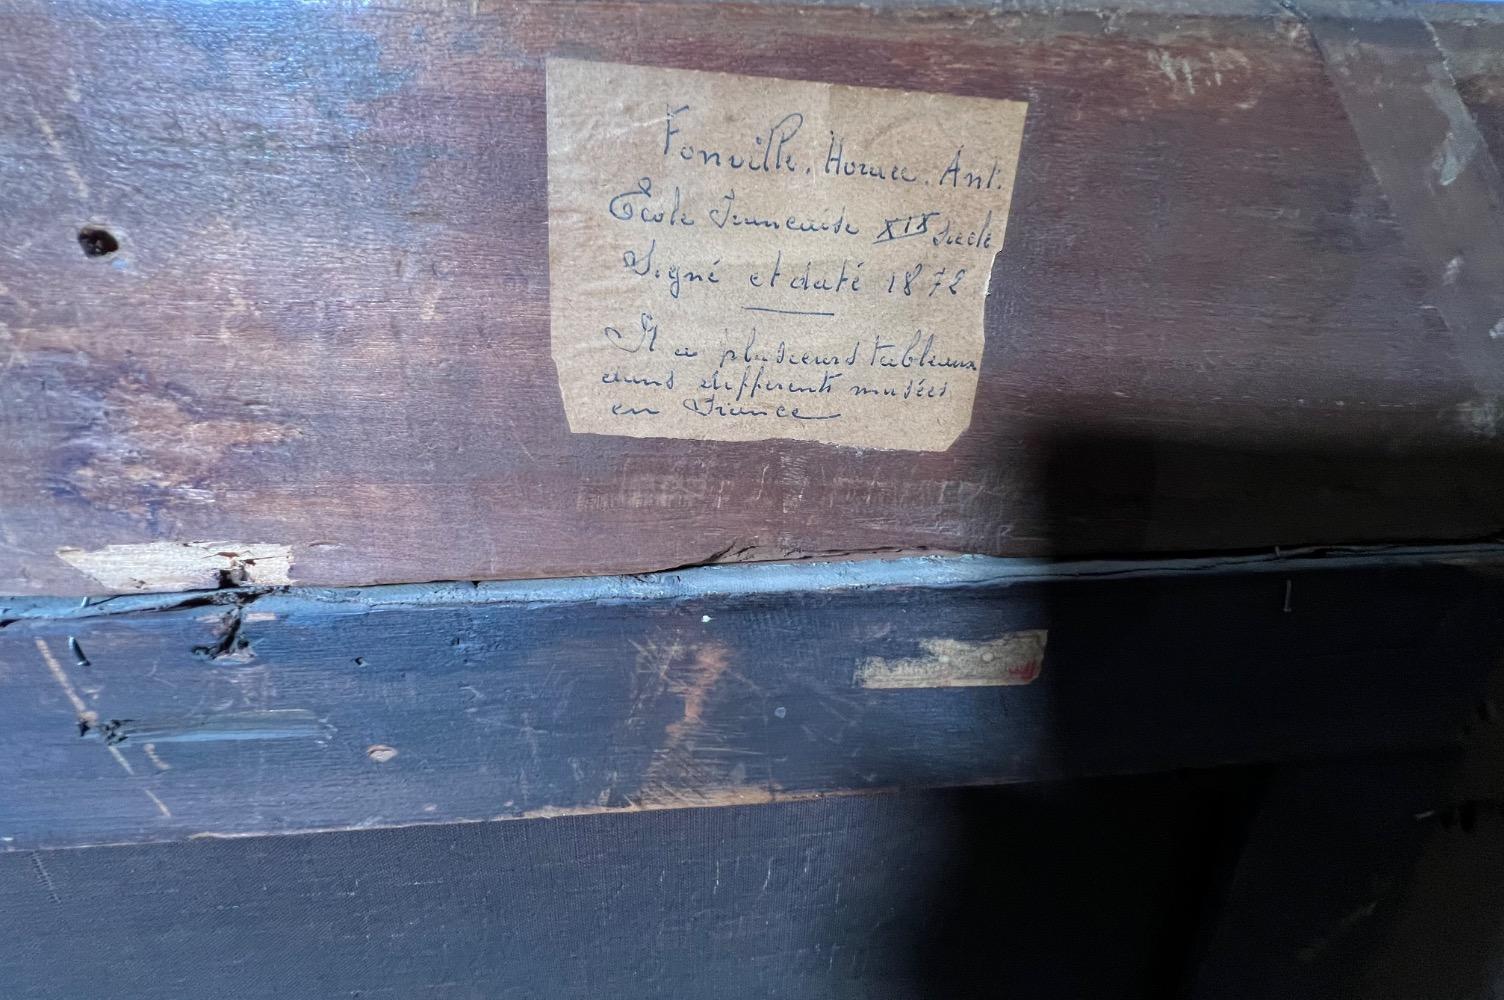 Fonville. Horace. Ant.
École Francaise XIX siecle
Signé et daté 1872
Il a plusieurs tableaux
dans differents musées
en France